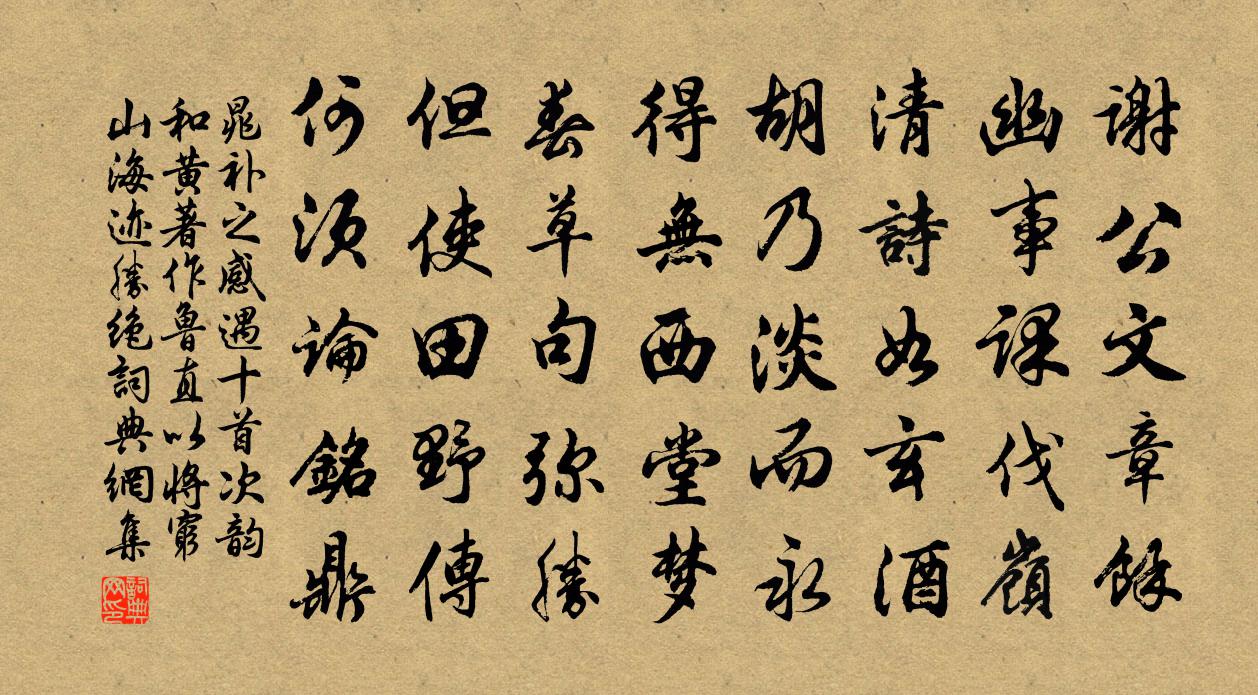 謝公文章餘
幽事課伐嶺
清詩如玄酒
胡乃淡而永
得無西堂梦
春草句弥勝
但使田野傳
何須論銘鼎
晁补之感遇十首次韵
和黄著作鲁直以将窮
山海迹勝絶詞典網集